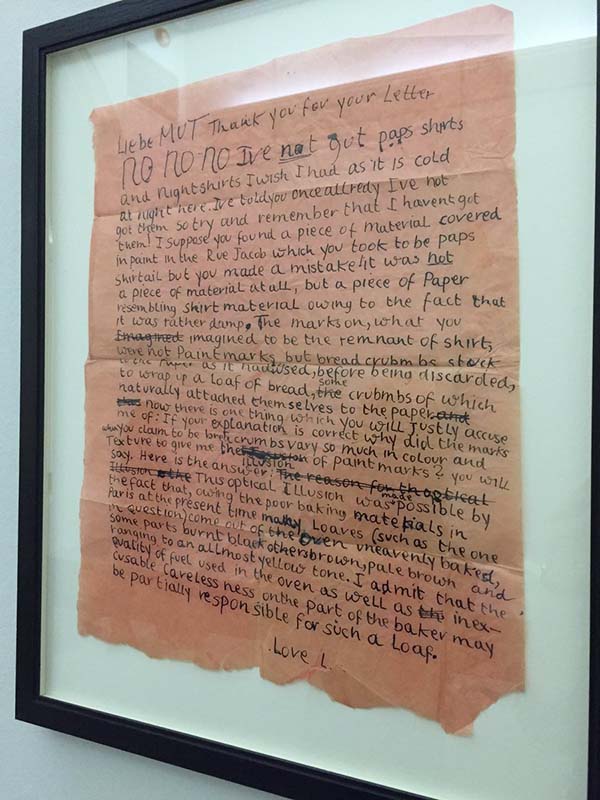 Liebe MUT Thank you for your Letter
NO NO NO Ive not got paps shirts
and nightshirts I wish I had as it is cold
at night here. Ive told you once allready Ive not
got them so try and remember that I havent got
them! I suppose you found a piece of material covered
in paint in the Rue Jacob which you took to be paps
shirtail but you made a mistake it was not
a piece of material at all, but a piece of Paper
resembling shirt material owing to the fact that
it was rather damp. The marks on, what you
Imagined imagined to be the remnant of shirt,
were not Paintmarks, but bread crubmbs stuck
to the Paper as it had used, before being discarded,
to wrap up a loaf of bread, the some crubmbs of which
naturally attached themselves to the paper and
this now there is one thing which you will justly accuse
me of: If your explanation is correct why did the marks
when you claim to be bread crumbs vary so much in colour and
Texture to give me the illusion of paintmarks? you will
say. Here is the answer: The reason for the optical
Illusion the This optical Illusion was made possible by
the fact that, owing the poor baking materials in
Paris at the present time many Loaves (such as the one
in question) come out of the oven uneavenly baked,
some parts burnt black others brown, pale brown and
ranging to an allmost yellow tone. I admit that the
quality of fuel used in the oven as well as inex-
cusable careless ness on the part of the baker may
be partially responsible for such a loaf.
Love L.